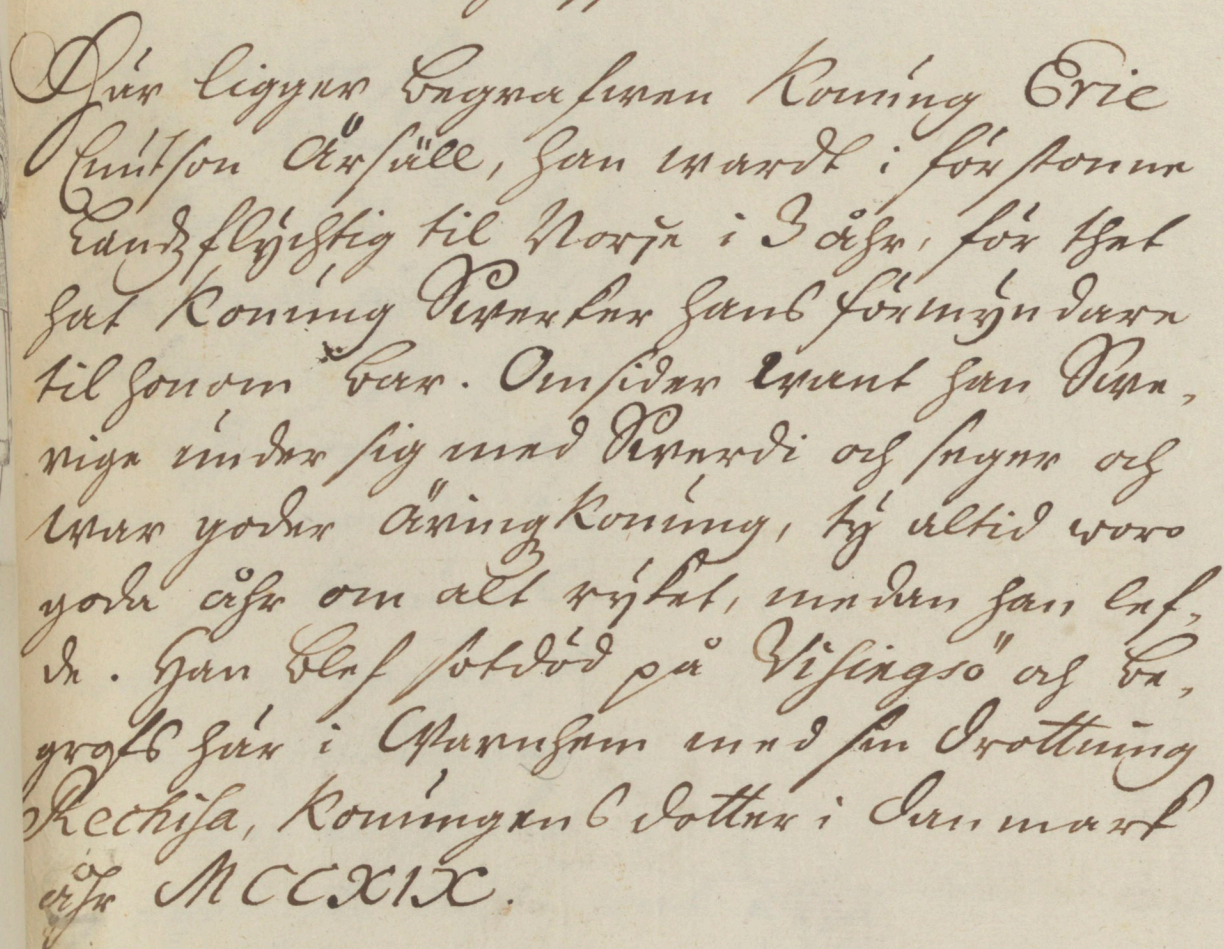 Här ligger begrafwen Konung Eric
Cnutson Årsäll, han wardt i förstonne
Landzflychtig til Norje i 3 åhr, för thet
hat Konung Swerker hans förmyndare
til honom bar. Omsider want han Swe-
rige under sig med Swerdi och seger och
war goder äringzkonung, ty altid woro
goda åhr om alt ryket, medan han lef-
de. Han blef sotdöd på Visingsö och be-
grofs här i Warnhem med sin drottning
Rechisa, Konungens dotter i Danmark
åhr MCCXIX.